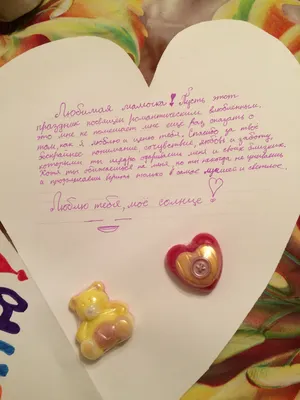 Любимая мамочка! Пусть этот
праздник посвящён романтическим влюблённым,
это мне не помешает мне ещё раз сказать о
том, как я люблю и ценю тебя. Спасибо за твоё
понимание, сочувствие, любовь и заботу,
которыми ты щедро одариваешь меня и своих близких.
Хотя ты обижаешься на меня, но ты никогда не
и продолжаешь верить только в самое лучшее и светлое..
Люблю тебя, моё солнце!